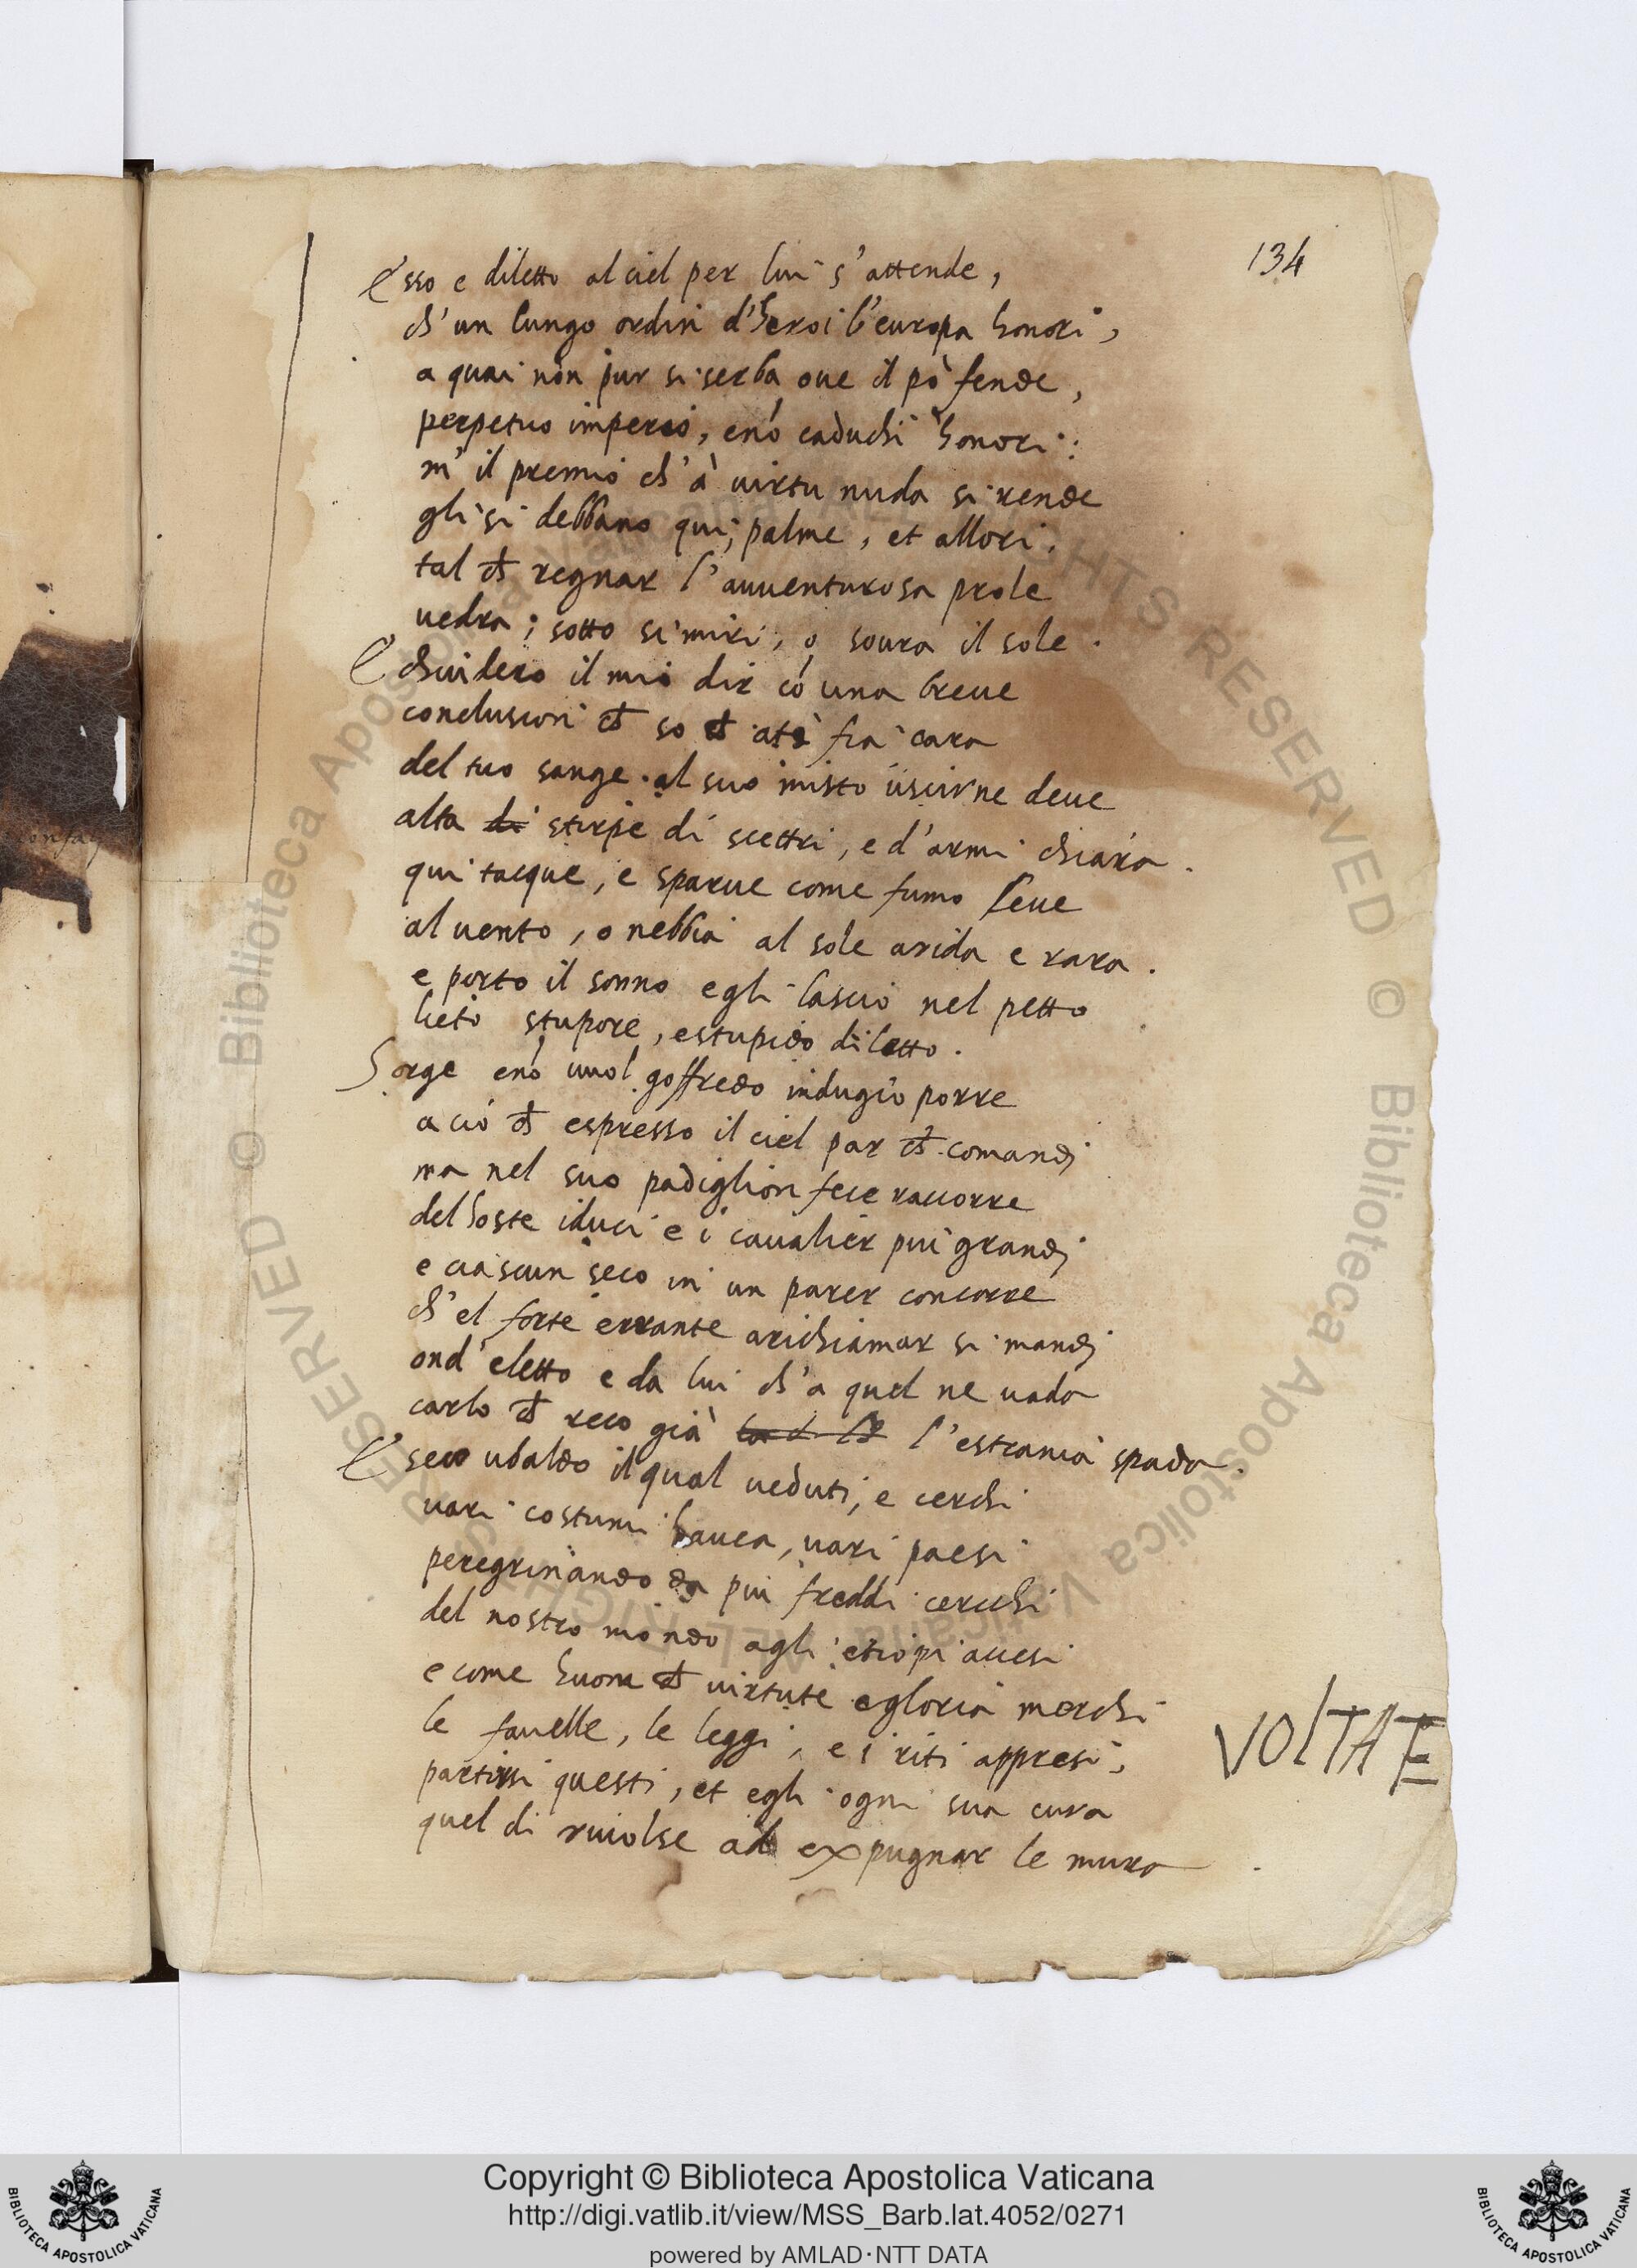 134
Esso e diletto al ciel per lui s'attende,
ch'un lungo ordin d'heroi l'europa honori,
a quai non pur si serba oue il pò fende,
perpetuo imperio, enó caduchi honori:
m'il premio ch'à uirtu nuda si rende
gli si debbano qui, palme, et allori.
tal ch regnar l'auuenturosa prole
uedra; sotto si miri, o soura il sole.
E chiudero il mio dir có una breue
conclusion ch so ch atè fia cara
del tuo sange al suo misto uscirne deue
alta di stirpe di scettri, e d'armi chiara.
qui tacque, e sparue come fumo leue
al uento, o nebbia al sole arida e rara.
e porto il sonno egli lascio nel petto
lieto stupore, estupido diletto.
Sorge enó uuol goffredo indugio porre
a ciò ch espresso il ciel par ch comandi
ma nel suo padiglion fece raccorre
del hoste iduci e i caualier piu grandi
e ciascun seco in un parer concorre
ch'el forte errante arichiamar si mandi
ond'eletto e da lui ch'a quel ne uada
carlo ch reco già l'estrania spada.
E seco ubaldo il qual ueduti, e cerchi
uari costumi hauea, uari paesi
peregrinando da piu freddi cerchi
del nostro mondo agli etiopi accesi
e come huom ch uirtute e gloria merchi
le fauelle, le leggi, e i riti appresi,
partirsi questi, et egli ogni sua cura
quel di riuolse ad expugnar le mura.
VOlTATE
© Biblioteca Apostolica Vaticana ALL RIGHTS RESERVED © Biblioteca Apostolica Vaticana ALL RIGHTS RESERVED
Copyright © Biblioteca Apostolica Vaticana
http://digi.vatlib.it/view/MSS_Barb.lat.4052/0271
powered by AMLAD·NTT DATA
BIBLIOTECA APOSTOLICA VATICANA
BIBLIOTECA APOSTOLICA VATICANA